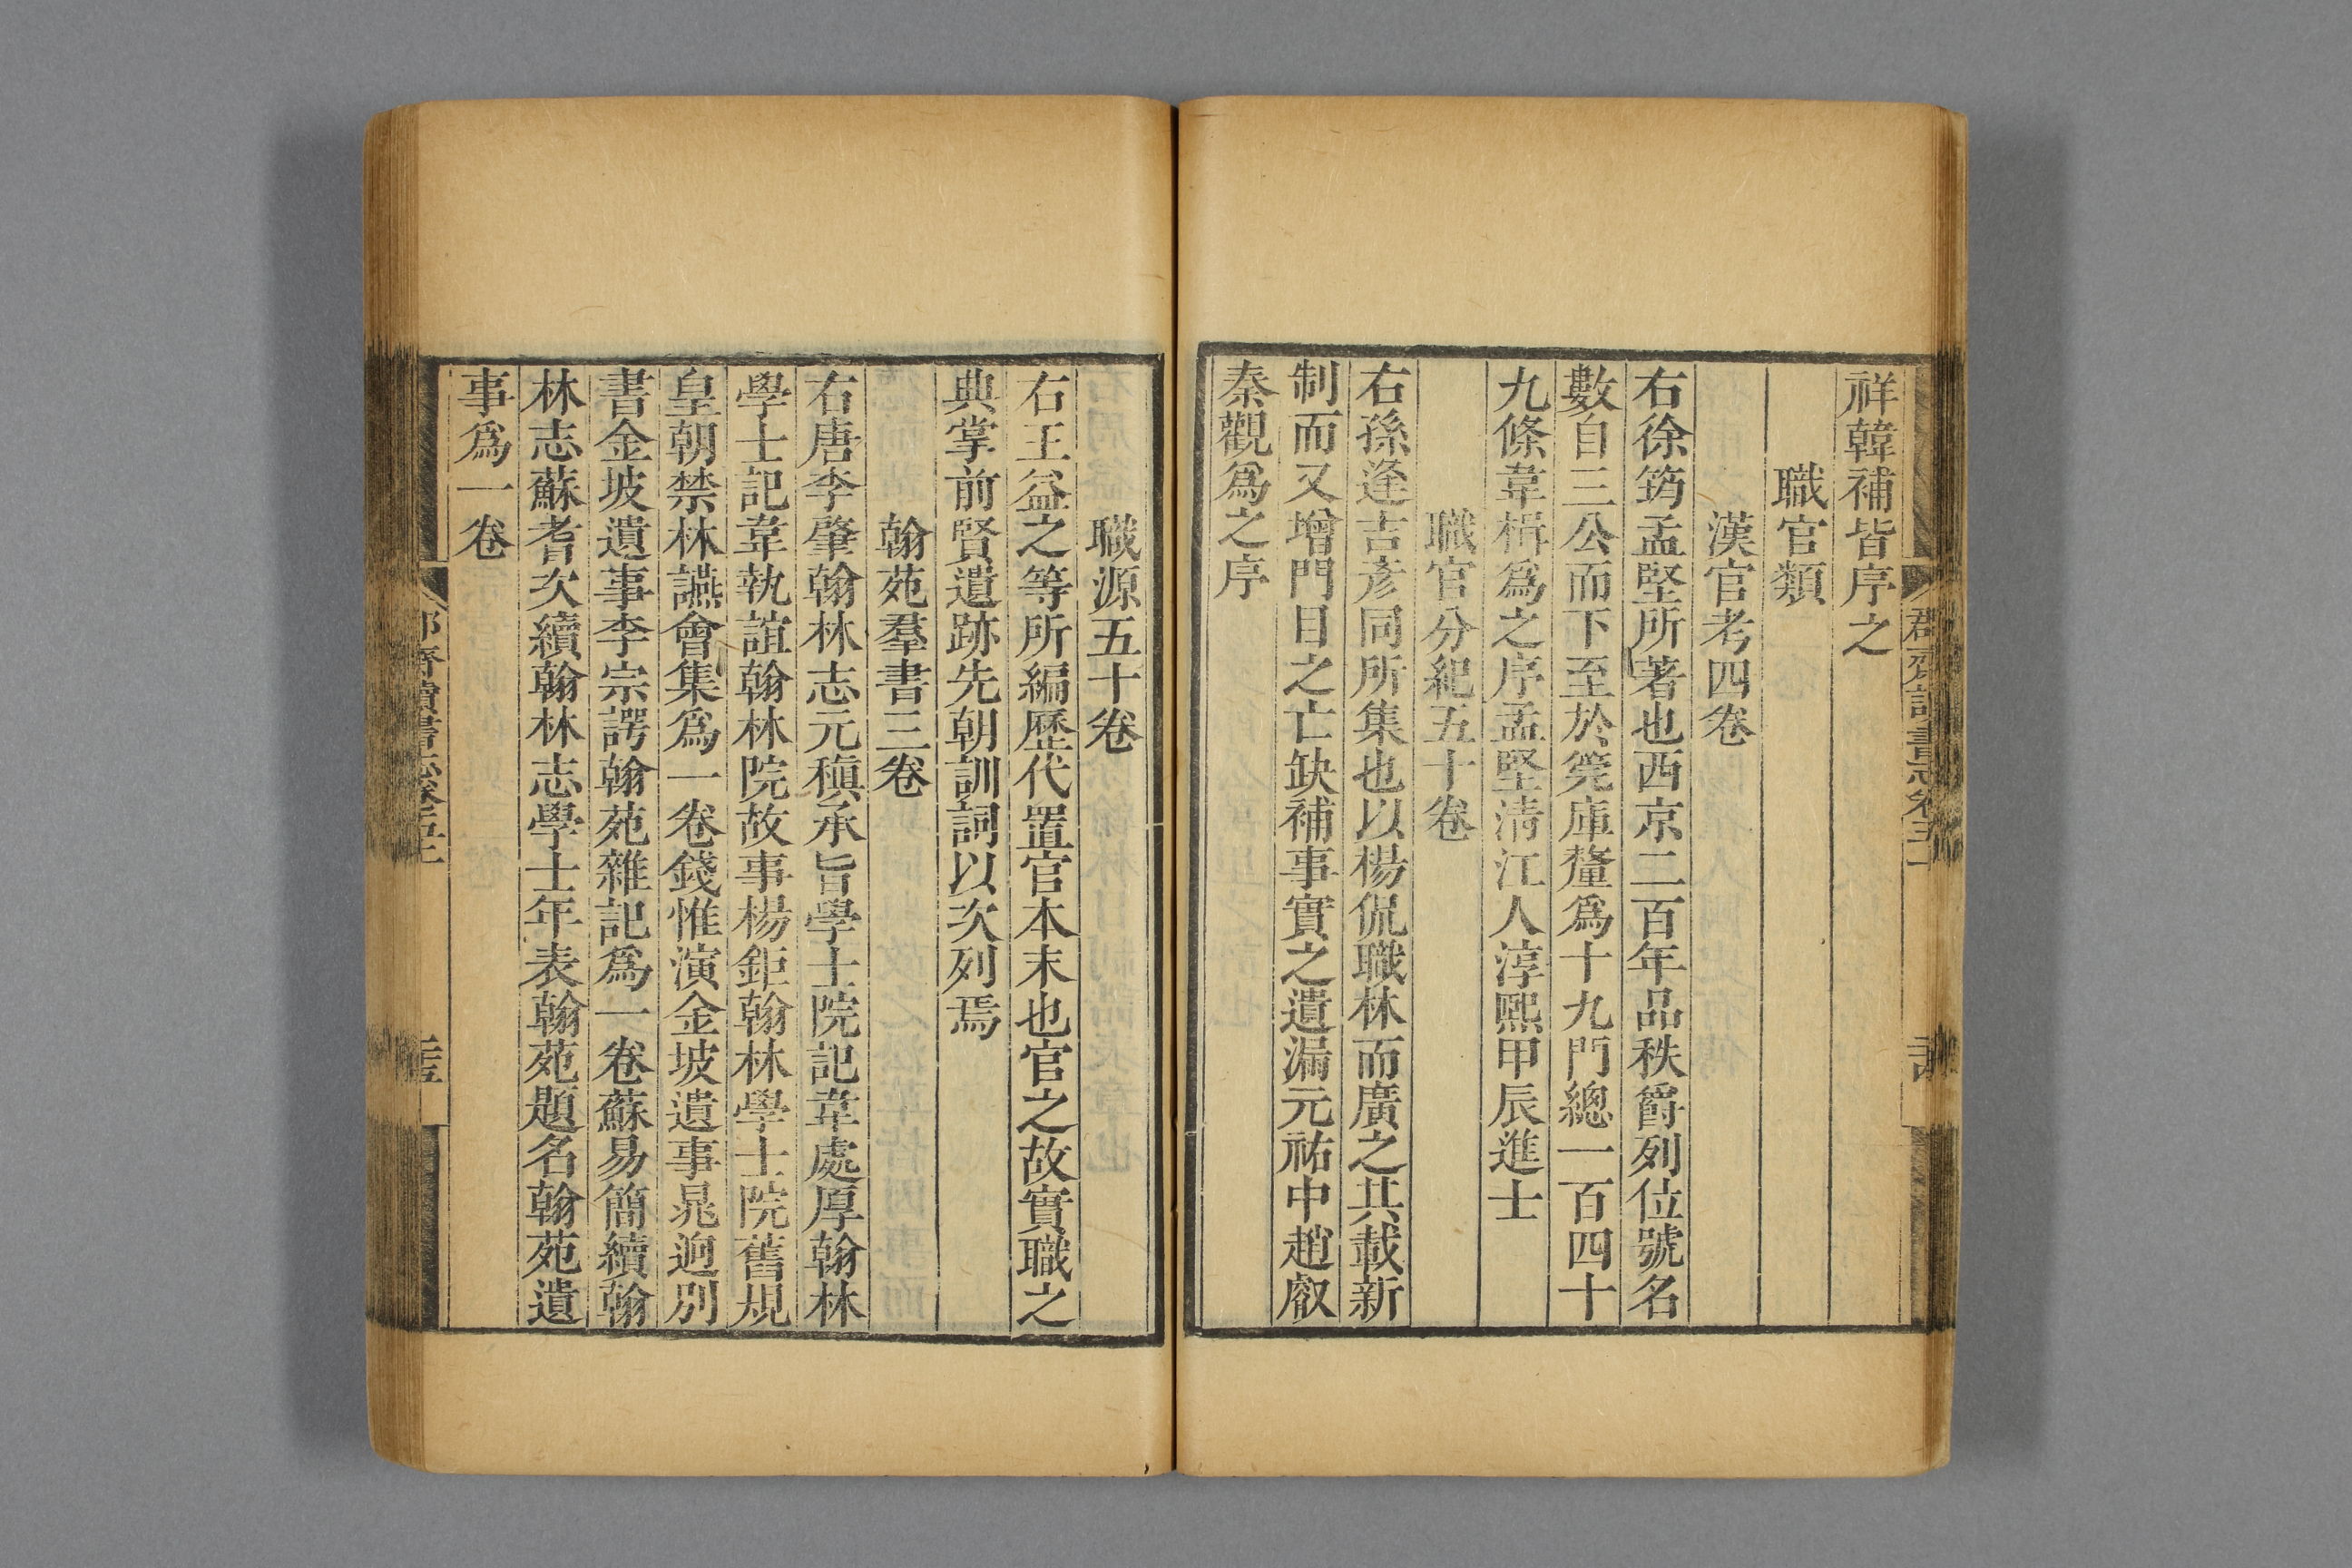 祥韓補皆序之
職官類
漢官考四卷
右徐筠孟堅所著也西京二百年品秩爵列位號名
數自三公而下至於筦庫釐爲十九門總一百四十
九條韋楫爲之序孟堅淸江人淳熙甲辰進士
職官分紀五十卷
右孫逢吉彥同所集也以楊侃職林而廣之其載新
制而又增門目之亡缺補事實之遺漏元祐中趙叡
秦觀爲之序
職源五十卷
右王益之等所編歷代置官本末也官之故實職之
典掌前賢遺跡先朝訓詞以次列焉
翰苑羣書三卷
右唐李肇翰林志元稹承旨學士院記韋處厚翰林
學士記韋執誼翰林院故事楊鉅翰林學士院舊規
皇朝禁林讌會集爲一卷錢惟演金坡遺事晁迥別
書金坡遺事李宗諤翰苑雜記爲一卷蘇易簡續翰
林志蘇耆次續翰林志學士年表翰苑題名翰苑遺
事爲一卷